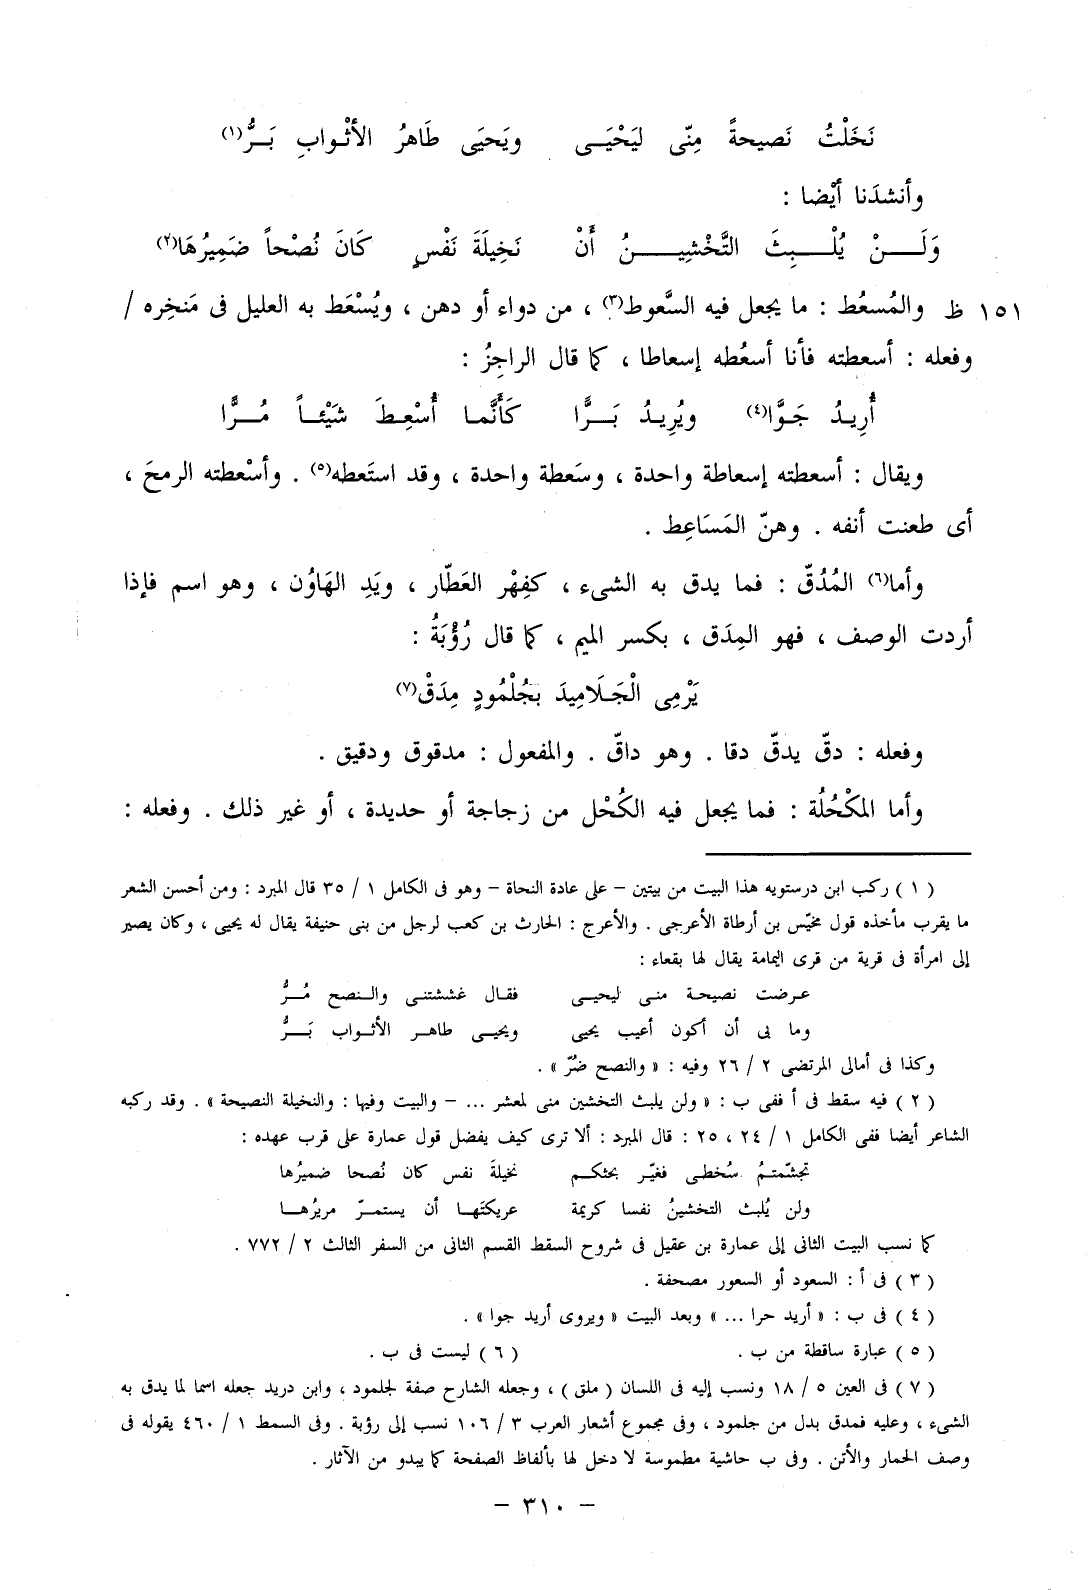 نَخَلْتُ نَصيحةً مِنّى ليَحْيَــى ويَحيَى طَاهرُ الأثْـوابِ بَــرُّ(١)
وأنشدَنا أيْضا :
وَلَــنْ يُلْـــبِثَ التَّخْشِيـــنُ أَنْ نَخِيلَةَ نَفْسٍ كَانَ نُصْحاً ضَمِيرُهَا(٢)
١٥١ ظ والمُسعُط : ما يجعل فيه السَّعوط(٣) ، من دواء أو دهن ، ويُسْعَط به العليل فى مَنخِره /
وفعله : أسعطته فأنا أسعُطه إسعاطا ، كما قال الراجِزُ :
أُرِيـدُ جَـوَّا(٤) ويُرِيـدُ بَـــرَّا كَأَنَّمـا أُسْعِـطَ شَيْئـاً مُـــرَّا
ويقال : أسعطته إسعاطة واحدة ، وسَعطة واحدة ، وقد استَعطه(٥) . وأسْعطته الرمحَ ،
أى طعنت أنفه . وهنّ المَسَاعِط .
وأما(٦) المُدُقّ : فما يدق به الشىء ، كفِهْر العَطّار ، ويَدِ الهَاوُن ، وهو اسم فإذا
أردت الوصف ، فهو المِدَق ، بكسر الميم ، كما قال رُؤْبَةُ :
يَرْمِى الْجَـلَامِيدَ بَجُلْمُودٍ مِدَقْ(٧)
وفعله : دقّ يدقّ دقا . وهو داقّ . والمفعول : مدقوق ودقيق .
وأما المكْحُلُة : فما يجعل فيه الكُحْل من زجاجة أو حديدة ، أو غير ذلك . وفعله :
( ١ ) ركب ابن درستويه هذا البيت من بيتين – على عادة النحاة – وهو فى الكامل ١ / ٣٥ قال المبرد : ومن أحسن الشعر
ما يقرب مأخذه قول مخيّس بن أرطاة الأعرجى . والأعرج : الحارث بن كعب لرجل من بنى حنيفة يقال له يحيى ، وكان يصير
إلى امرأة فى قرية من قرى اليمامة يقال لها بقعاء :
عـرضت نصيحـة منـى ليحيـى فقـال غششتنـى والـنصح مُــرُّ
وما بى أن أكون أعيب يحيى ويحيـى طاهـر الأثـواب بَــرُّ
وكذا فى أمالى المرتضى ٢ / ٢٦ وفيه : « والنصح ضُرّ » .
( ٢ ) فيه سقط فى أ ففى ب : « ولن يلبث التخشين منى لمعشر ... – والبيت وفيها : والنخيلة النصيحة » . وقد ركبه
الشاعر أيضا ففى الكامل ١ / ٢٤ ، ٢٥ : قال المبرد : ألا ترى كيف يفضل قول عمارة على قرب عهده :
تجشّمتـمُ سُخطـى فغيّـر بحثكـم نخيلةَ نفس كان نُصحا ضميرُها
ولن يُلبث التخشينُ نفسا كريمة عريكتَهـا أن يستمـرّ مريرُهـا
كما نسب البيت الثانى إلى عمارة بن عقيل فى شروح السقط القسم الثانى من السفر الثالث ٢ / ٧٧٢ .
( ٣ ) فى أ : السعود أو السعور مصحفة .
( ٤ ) فى ب : « أريد حرا ... » وبعد البيت « ويروى أريد جوا » .
( ٥ ) عبارة ساقطة من ب . ( ٦ ) ليست فى ب .
( ٧ ) فى العين ٥ / ١٨ ونسب إليه فى اللسان ( ملق ) ، وجعله الشارح صفة لجلمود ، وابن دريد جعله اسما لما يدق به
الشىء ، وعليه فمدق بدل من جلمود ، وفى مجموع أشعار العرب ٣ / ١٠٦ نسب إلى رؤبة . وفى السمط ١ / ٤٦٠ يقوله فى
وصف الحمار والأتن . وفى ب حاشية مطموسة لا دخل لها بألفاظ الصفحة كما يبدو من الآثار .
– ٣١٠ –